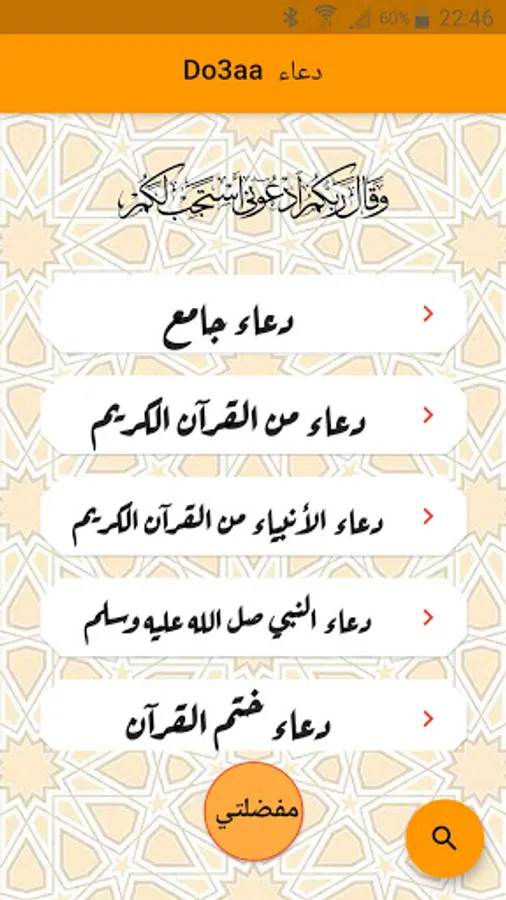 60% 22:46
Do3aa دعاء
وَقَالَ رَبُّكُمُ ادْعُونِي أَسْتَجِبْ لَكُمْ
دعاء جامع
دعاء من القرآن الكريم
دعاء الأنبياء من القرآن الكريم
دعاء النبي صل الله عليه وسلم
دعاء ختم القرآن
مفضلتي